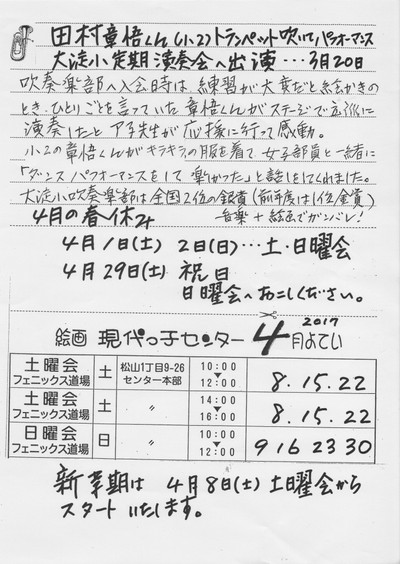 田村章悟くん(小2)トランペット吹いてパフォーマンス
大淀小定期演奏会へ出演…3月20日
吹奏楽部へ入会時は、練習が大変だと絵かきの
とき、ひとりごとを言っていた章悟くんがステージで立派に
演奏したとア子先生が応援に行って感動。
小2の章悟くんがキラキラの服を着て、女子部員と一緒に
「ダンスパフォーマンスをして楽しかった」と話をしてくれました。
大淀小吹奏楽部は全国2位の銀賞(前年度は1位金賞)
4月の春休み 音楽+絵画でガンバレ!
4月1日(土) 2日(日)…土・日曜会
4月29日(土) 祝日
日曜会へおこしください。
絵画 現代っ子センター 4月よてい 2017
土曜会 フェニックス道場 土 松山1丁目9-26 センター本部 10:00 ▼ 12:00 8.15.22
土曜会 フェニックス道場 土 〃 14:00 ▼ 16:00 8.15.22
日曜会 フェニックス道場 日 〃 10:00 ▼ 12:00 9 16 23 30
新学期は 4月8日(土) 土曜会から
スタートいたします。